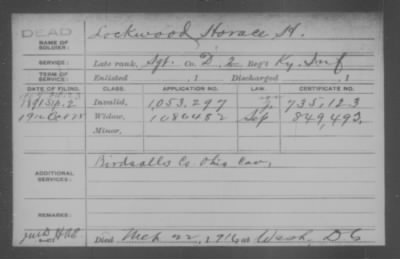 DEAD
NAME OF SOLDIER: Lockwood, Horace H.
SERVICE: Late rank, Sgt. Co. D, 2 Reg't Ky. Inf
TERM OF SERVICE: Enlisted , 1 Discharged , 1
DATE OF FILING. CLASS. APPLICATION NO. LAW. CERTIFICATE NO.
1891 Sep. 2 Invalid, 1,053,297 735,123
Widow, 849,493.
Minor,
ADDITIONAL SERVICES: Birdsalls Co Ohio Cav.
REMARKS:
Died Mch 22, 1916 at Wash, D C